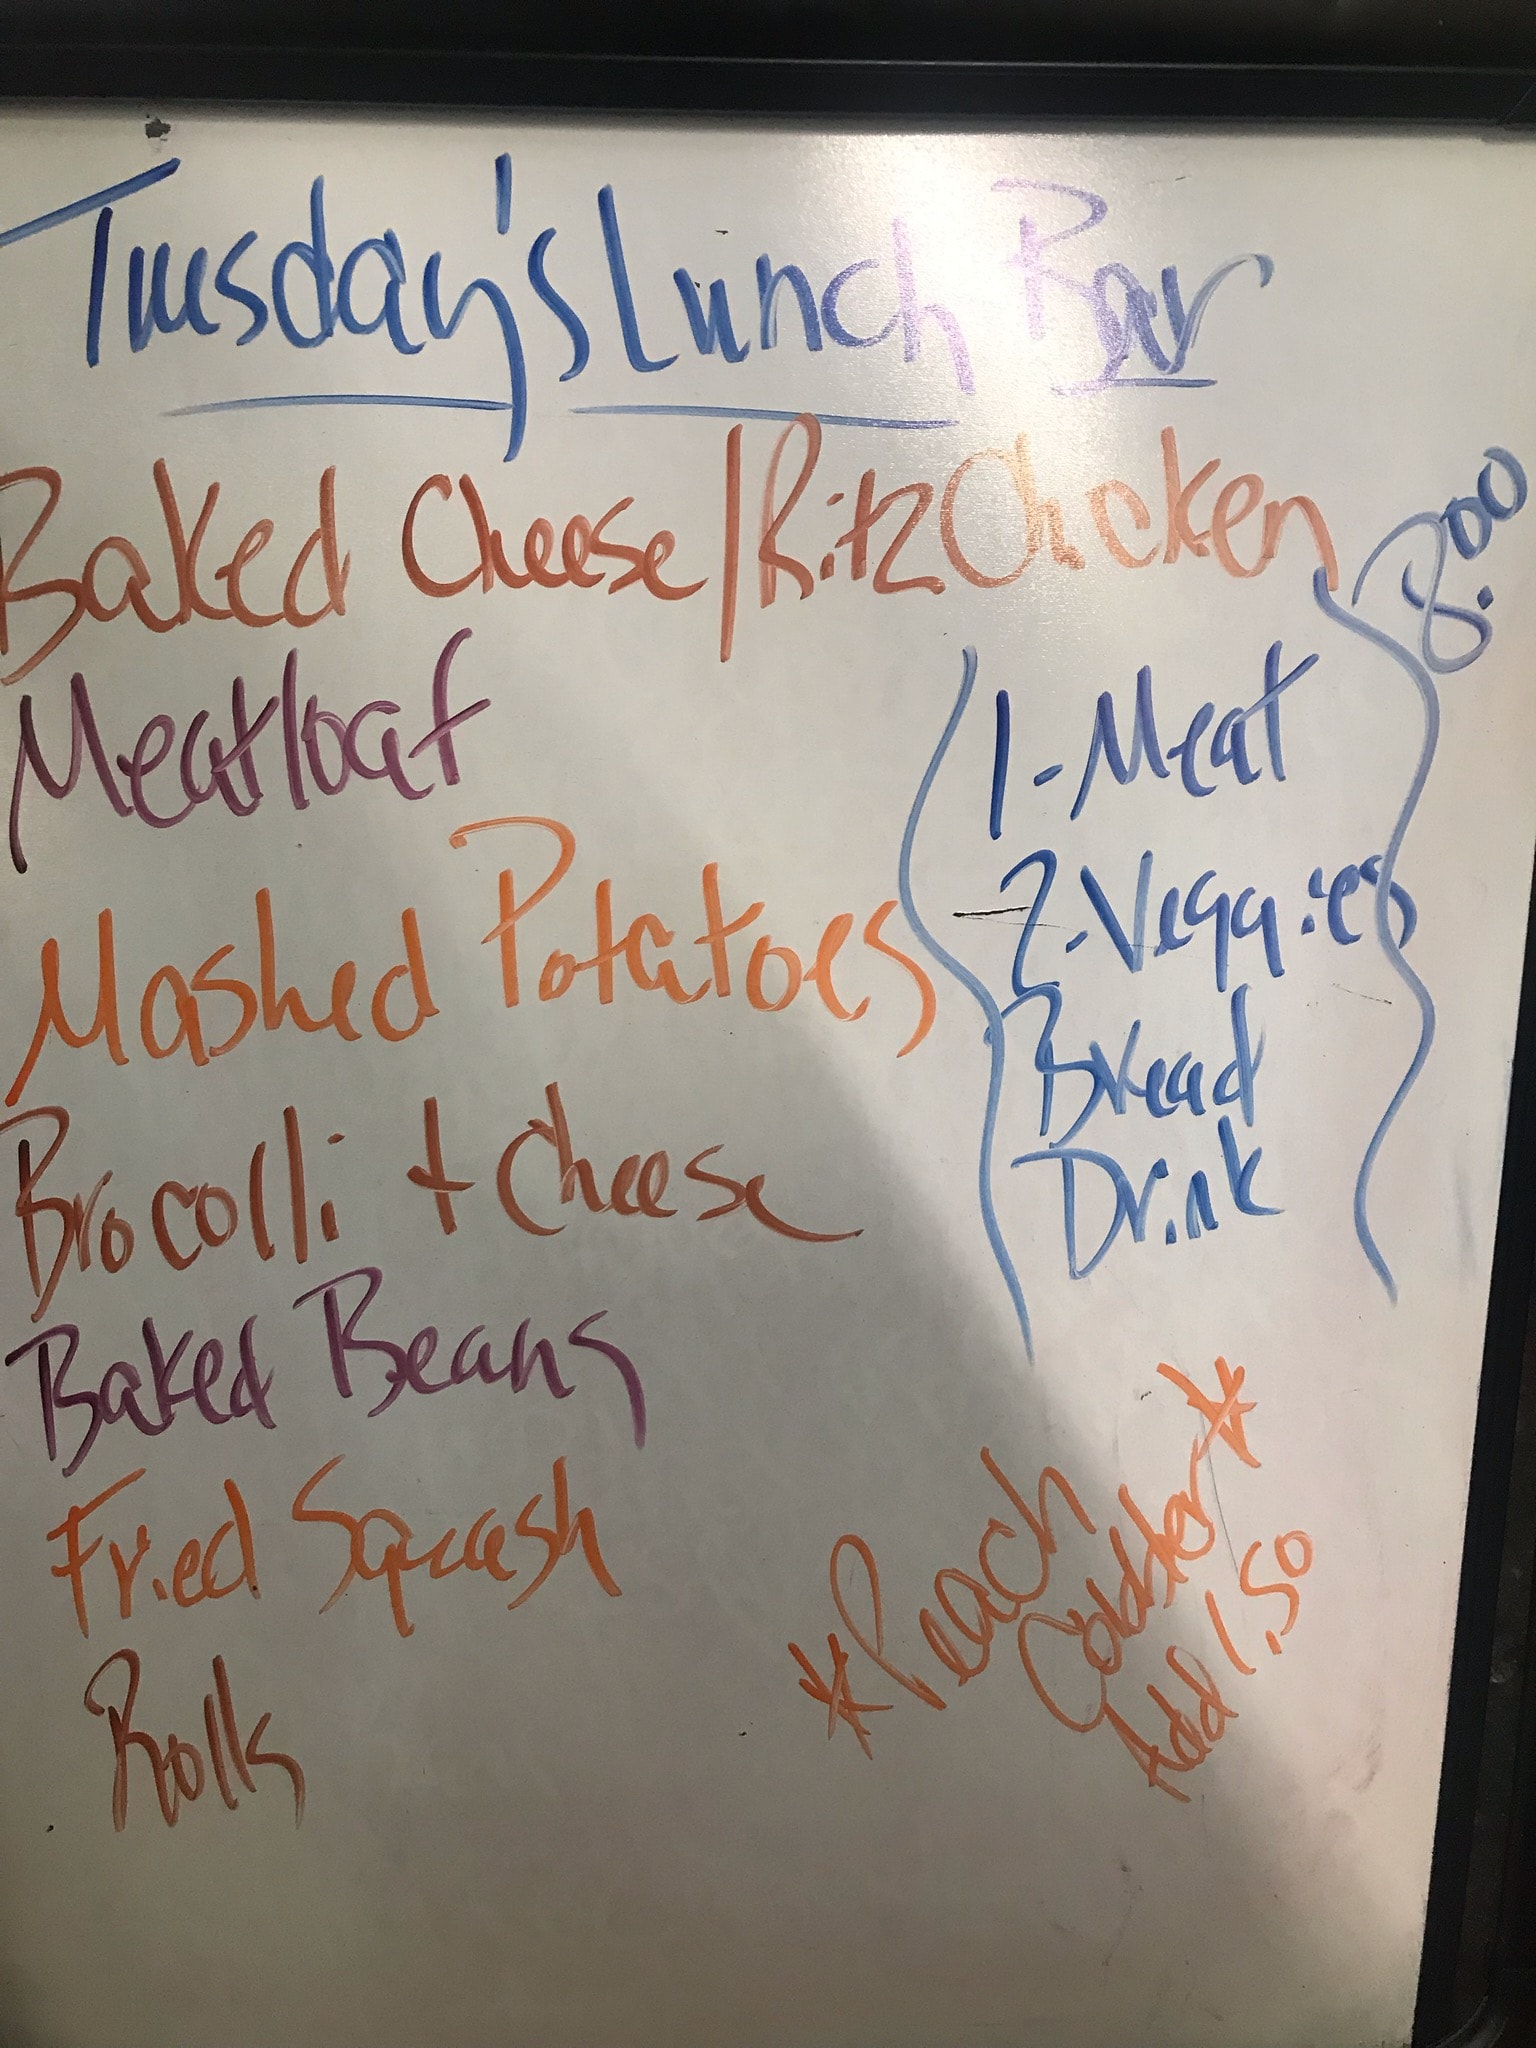 Tuesday's Lunch Bar
Baked Cheese/Ritz Chicken
Meatloaf
Mashed Potatoes
Brocolli + Cheese
Baked Beans
Fried Squash
Rolls
8.00
1-Meat
2-Veggies
Bread
Drink
*Peach
Cobbler*
Add 1.50